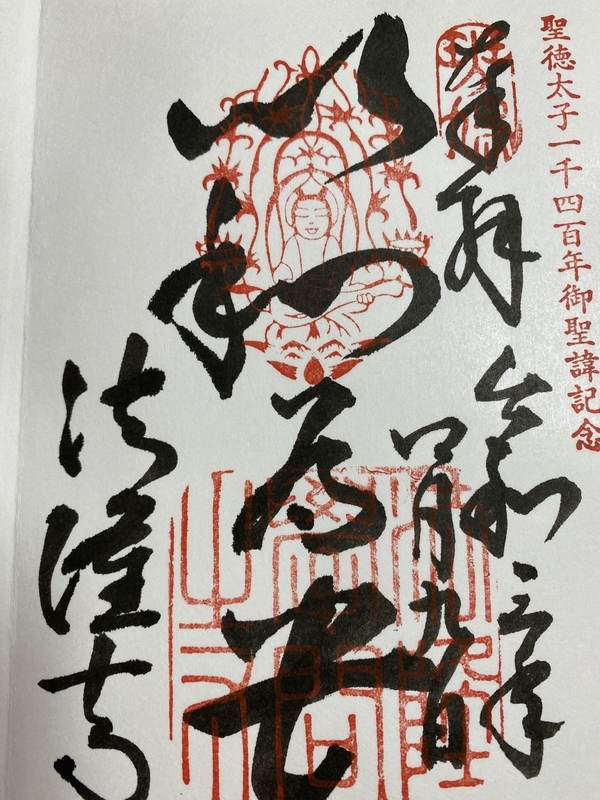 聖徳太子一千四百年御聖諱記念
奉拝
令和三年
四月九日
以和為貴
法隆寺